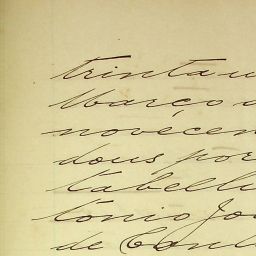 trinta u
Março d
novecen
dous por
tabelli
tonio Jo
de Cam